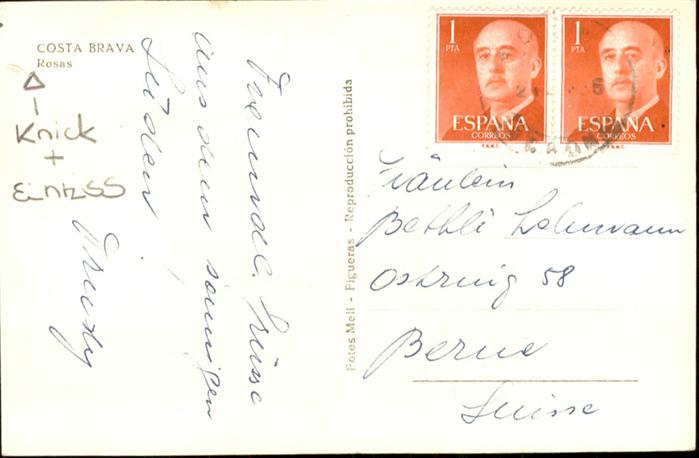 COSTA BRAVA
Rosas
Knick
+
Einriss
Freundl. Grüsse
aus dem sonnigen
Süden
Trudy
Fotos Meli - Figueras - Reproducción prohibida
1
PTA
ESPAÑA
CORREOS
F.N.M.T.
1
PTA
ESPAÑA
CORREOS
F.N.M.T.
Fräulein
Bethli Lehmann
Ostring 58
Berne
Suisse